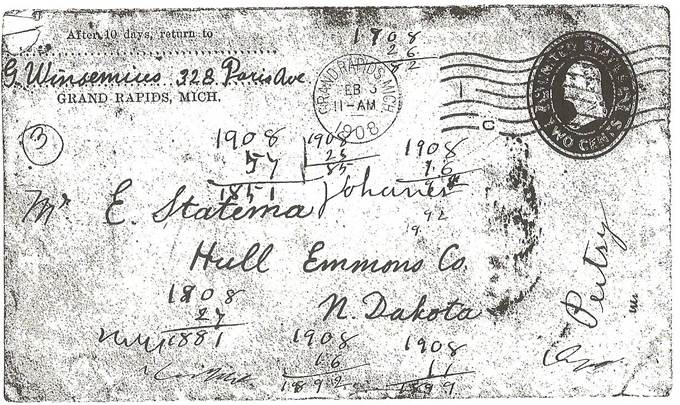 After 10 days, return to
G. Winsemius 328 Paris Ave.
GRAND RAPIDS, MICH.
1908
26
82
GRAND RAPIDS, MICH.
FEB 3
11-AM
1908
UNITED STATES
TWO CENTS
3
1908
57
1851
1908
23
85
1908
16
92
19
Johanes
Mr E. Statema
Hull Emmons Co.
N. Dakota
Peitsy
1908
27
1881
1908
16
1892
1908
11
1899